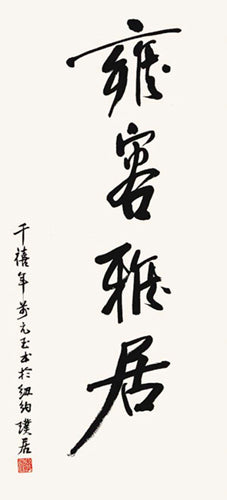 雍容雅居
千禧年黃元玉書於纽约璞居